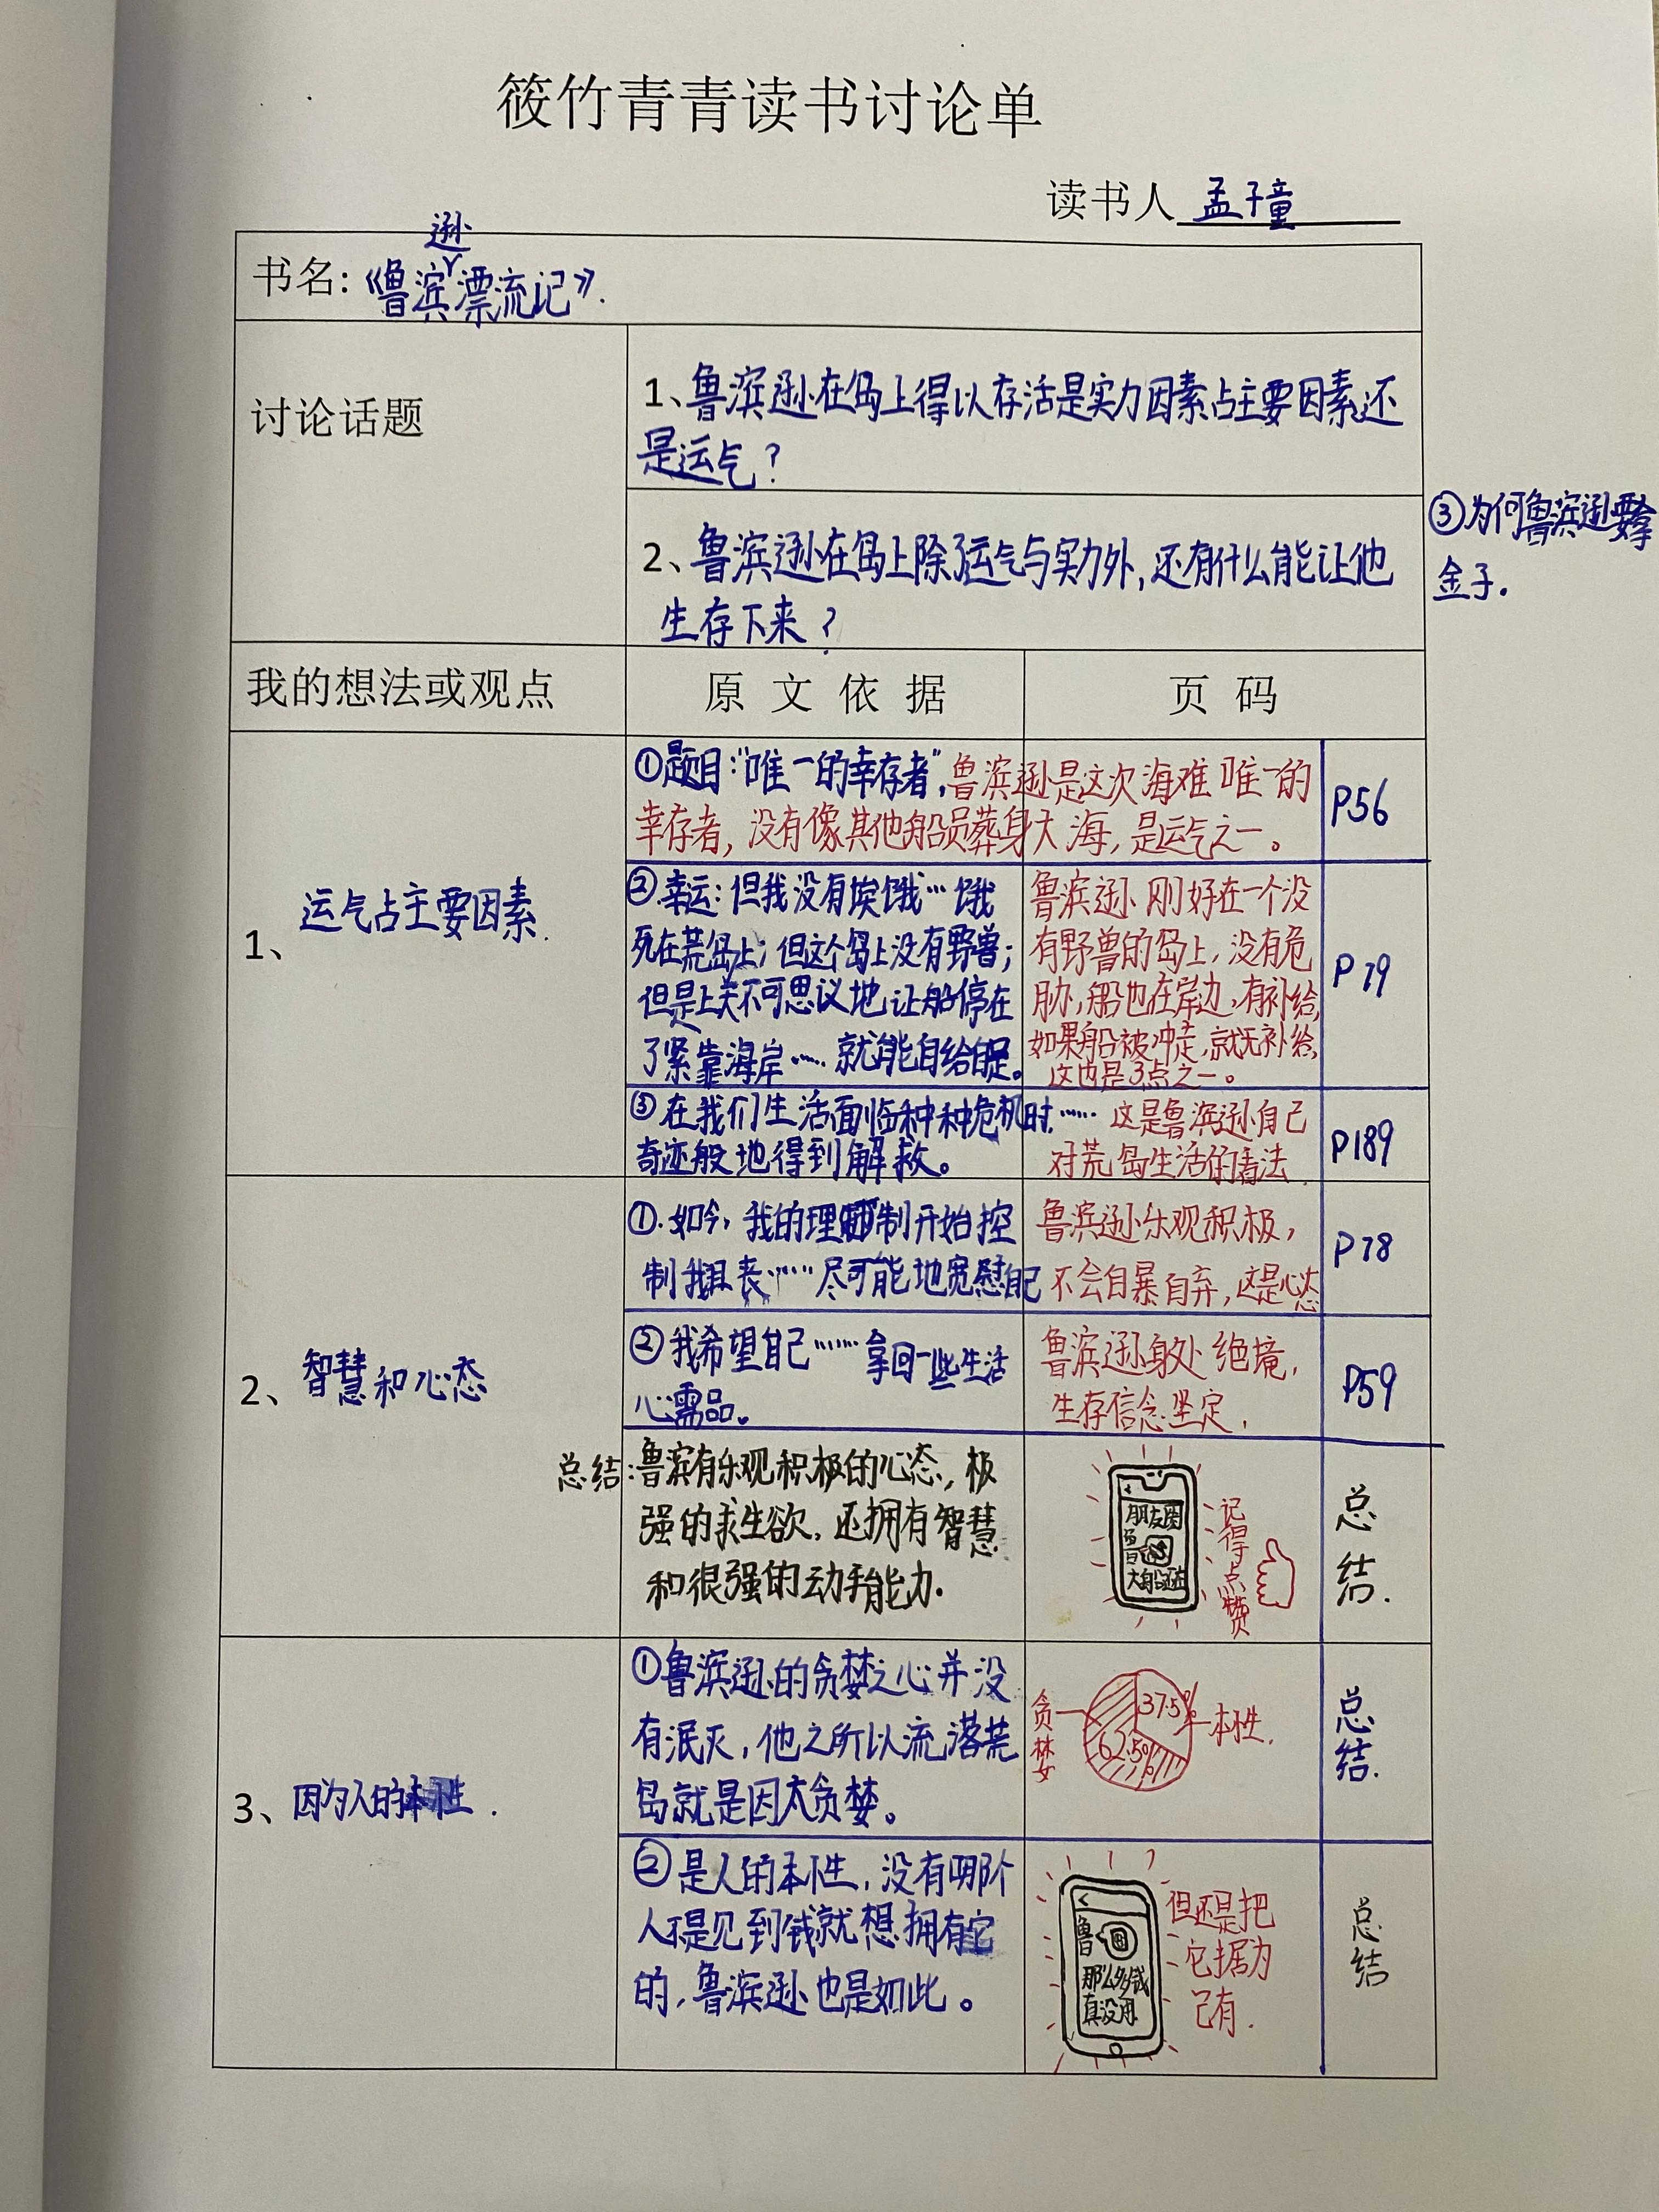 筱竹青青读书讨论单
读书人 孟子童
书名:《鲁滨逊漂流记》.
讨论话题
1、鲁滨逊在岛上得以存活是实力因素占主要因素还
是运气?
2、鲁滨逊在岛上除了运气与实力外,还有什么能让他
生存下来?
③为何鲁滨逊要拿
金子.
我的想法或观点
原文依据
页码
1、运气占主要因素.
①题目:“唯一的幸存者”,鲁滨逊是这次海难唯一的
幸存者,没有像其他船员葬身大海,是运气之一。
P56
②.幸运:但我没有挨饿…饿
死在荒岛上;但这个岛上没有野兽;
但是上天不可思议地让船停在
了紧靠海岸……就能自给自足。
鲁滨逊刚好在一个没
有野兽的岛上,没有危
胁,船也在岸边,有补给,
如果船被冲走,就无补给,
这也是3点之一。
P79
③在我们生活面临种种危机时……
奇迹般地得到解救。
这是鲁滨逊自己
对荒岛生活的看法.
P189
2、智慧和心态
①.如今,我的理制开始控
制我沮丧……尽可能地宽慰自己
鲁滨逊乐观积极,
不会自暴自弃,这是心态
P78
②我希望自己……拿回一些生活
心需品。
鲁滨逊身处绝境,
生存信念坚定.
P59
总结:鲁滨有乐观积极的心态,极
强的求生欲,还拥有智慧
和很强的动手能力.
朋友圈
大船还在
记得点赞
总结.
3、因为人的本性.
①鲁滨逊的贪婪之心并没
有泯灭,他之所以流落荒
岛就是因太贪婪。
贪婪
37.5%
62.5%
本性.
总结.
②是人的本性,没有哪个
人不是见到钱就想拥有它
的,鲁滨逊也是如此。
鲁
那么多钱
真没用
但还是把
它据为
己有.
总结